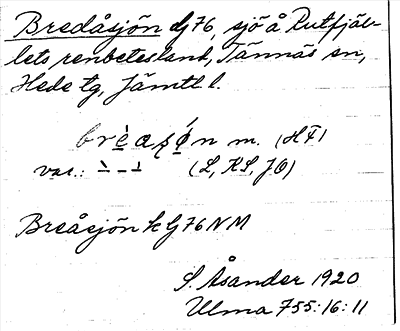 Bredåsjön dj 76, sjö å Rutfjäl-
lets renbetesland, Tännäs sn,
Hede tg, Jämtl l.
brèaʂǿn m. (HF)
var.: ˋ – – ˊ (L, KS, JO)
Breåsjön k G76NM
S. Åsander 1920
Ulma 755:16:11